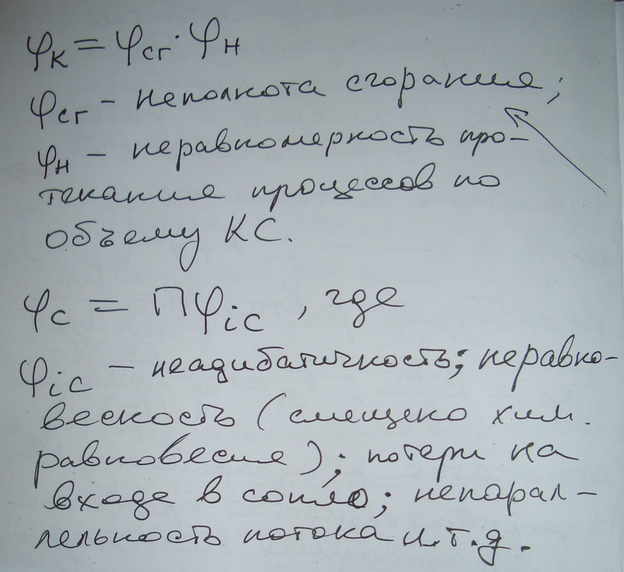 φк = φсг · φн
φсг – неполнота сгорания;
φн – неравномерность про-
текания процессов по
объему КС.
φс = Πφic , где
φic – неадибатичность; неравно-
весность (смещено хим.
равновесия); потери на
входе в сопло; непарал-
лельность потока и.т.д.